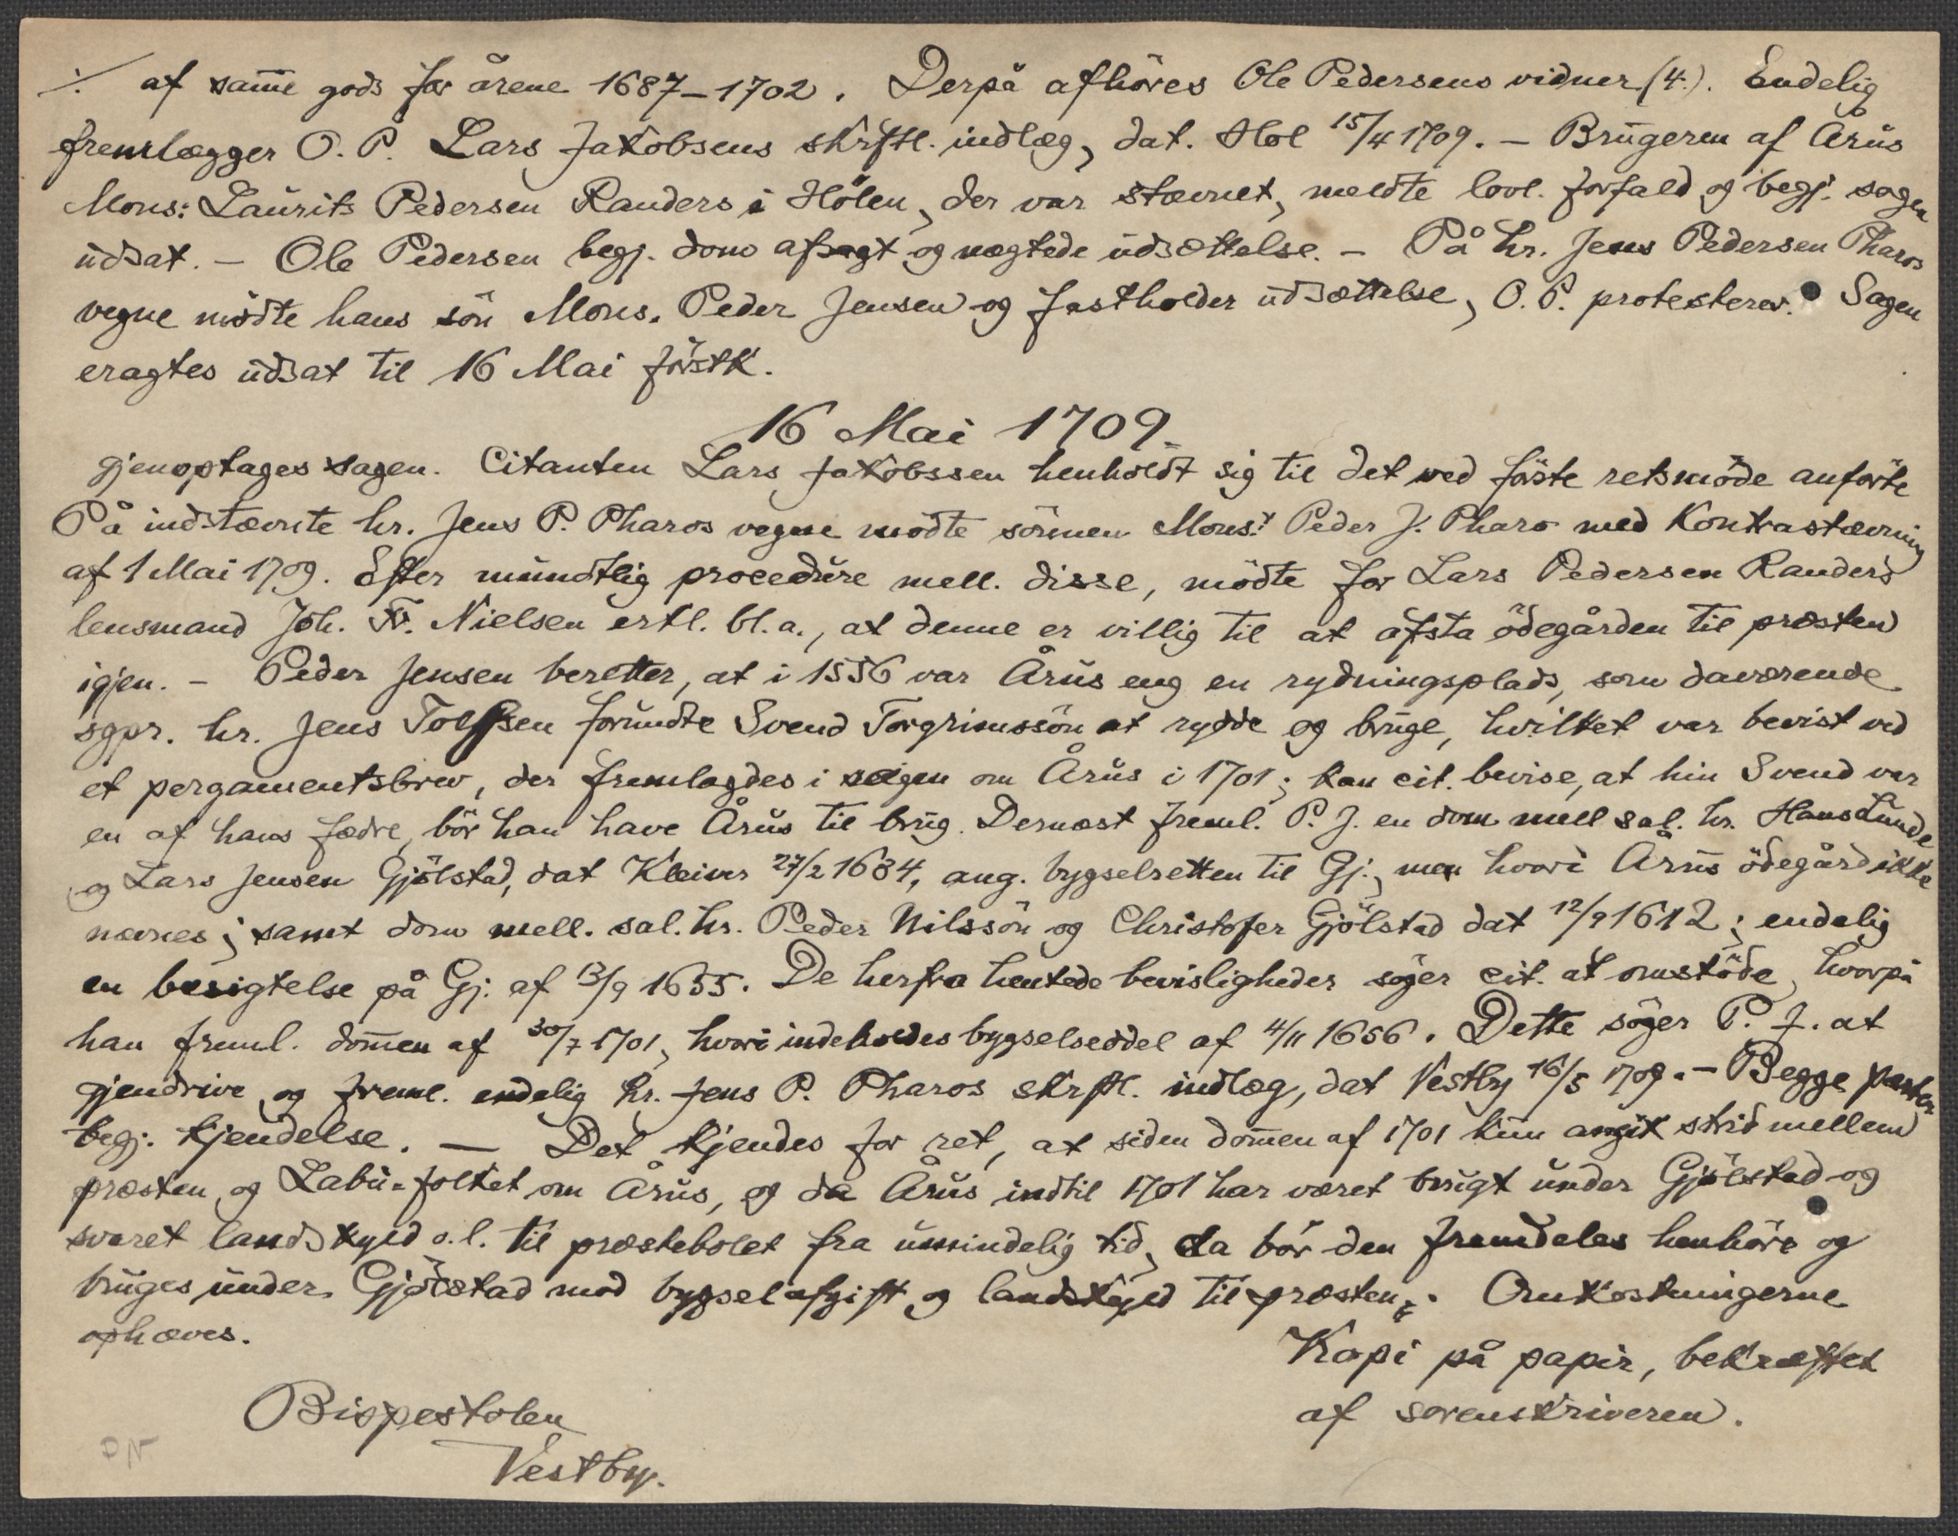 ./. af samme gods for årene 1687-1702. Derpå afhöres Ole Pedersens vidner (4.). Endelig
fremlægger O. P. Lars Jakobsens skrftl. indlæg, dat. Hol 15/4 1709. - Brugeren af Årus
Mons: Laurits Pedersen Randers i Hölen, der var stævnet, meldte lovl. forfald og begj. sagen
udsat. - Ole Pedersen begj. dom afsagt og nægtede udsættelse. - På hr. Jens Pedersen Pharos
vegne mödte hans sön Mons. Peder Jensen og fastholder udsættelse, O. P. protesterer. Sagen
eragtes udsat til 16 Mai förstk.
16 Mai 1709.
gjenoptages sagen. Citanten Lars Jakobssen henholdt sig til det ved förste retsmöde anförte
På indstævnte hr. Jens P. Pharos vegne mödte sönnen Mons.r Peder J. Pharo med Kontrastævning
af 1 Mai 1709. Efter mundtlig procedure mell. disse, mödte for Lars Pedersen Randers
lensmand Joh. Fr. Nielsen erkl. bl. a., at denne er villig til at afsta ödegården til præsten
igjen. - Peder Jensen beretter, at i 1556 var Årus eng en rydningsplads, som daværende
sgpr. hr. Jens Tolfsen forundte Svend Torgrimssön at rydde og bruge, hvilket var bevist ved
et pergamentsbrev, der fremlagdes i sagen om Årus i 1701; kan cit. bevise, at hin Svend var
en af hans fædre, bör han have Årus til brug. Dernæst freml. P. J. en dom mell sal. hr. Hans Lunde
og Lars Jensen Gjölstad, dat Kleiver 27/2 1684, ang. bygselretten til Gj., men hvori Årus ödegård ikke
nævnes; samt dom mell. sal. hr. Peder Nilssön og Christofer Gjölstad dat 12/9 1612; endelig
en besigtelse på Gj. af 13/9 1655. De herfra hentede bevisligheder söger cit. at omstöde, hvorpå
han freml. dommen af 30/7 1701, hvori indeholdes bygselseddel af 4/11 1656. Dette söger P. J. at
gjendrive, og freml. endelig hr. Jens P. Pharos skrftl. indlæg, dat Vestby 16/5 1709. - Begge parter
begj. kjendelse. - Det kjendes for ret, at siden dommen af 1701 kun angik strid mellem
præsten og Labu-folket om Årus, og da Årus indtil 1701 har været brugt under Gjölstad og
svaret landskyld o. l. til præstebolet fra umindelig tid, da bör den fremdeles henhöre og
bruges under Gjölstad mod bygselafgift og landskyld til præsten. Omkostningerne
ophæves.
Kopi på papir, bekræftet
af sorenskriveren.
Bispestolen
Vestby.
DN